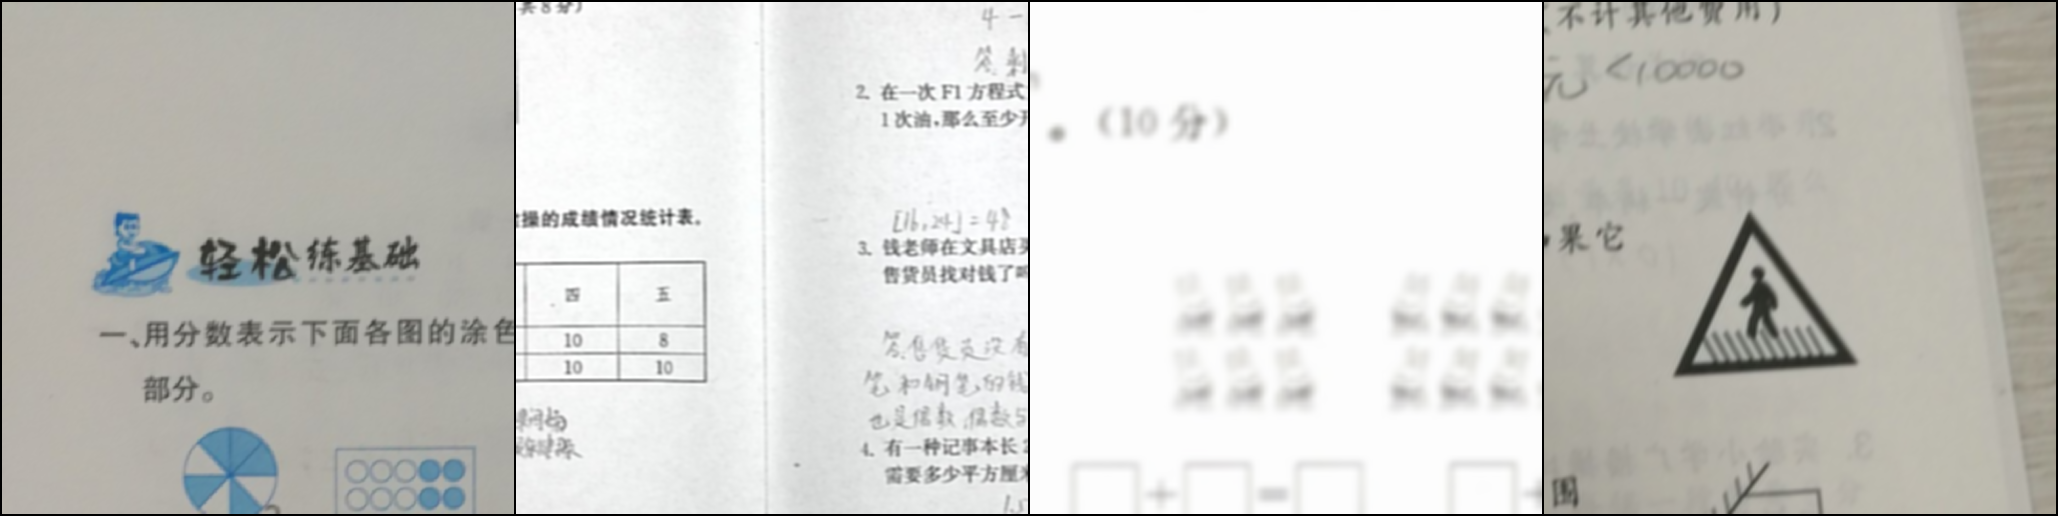 轻松练基础
一、用分数表示下面各图的涂色
部分。
共8分)
操的成绩情况统计表。
四 五
10 8
10 10
4-
答:剩
2. 在一次F1方程式
1次油,那么至少开
[16,24]=48
3. 钱老师在文具店买
售货员找对钱了吗
答:售货员没有
笔和钢笔的钱
也是倍数,倍数与
4. 有一种记事本长2
需要多少平方厘米
1.5
(10分)
+ =
+
不计其他费用)
元<10000
果它
围